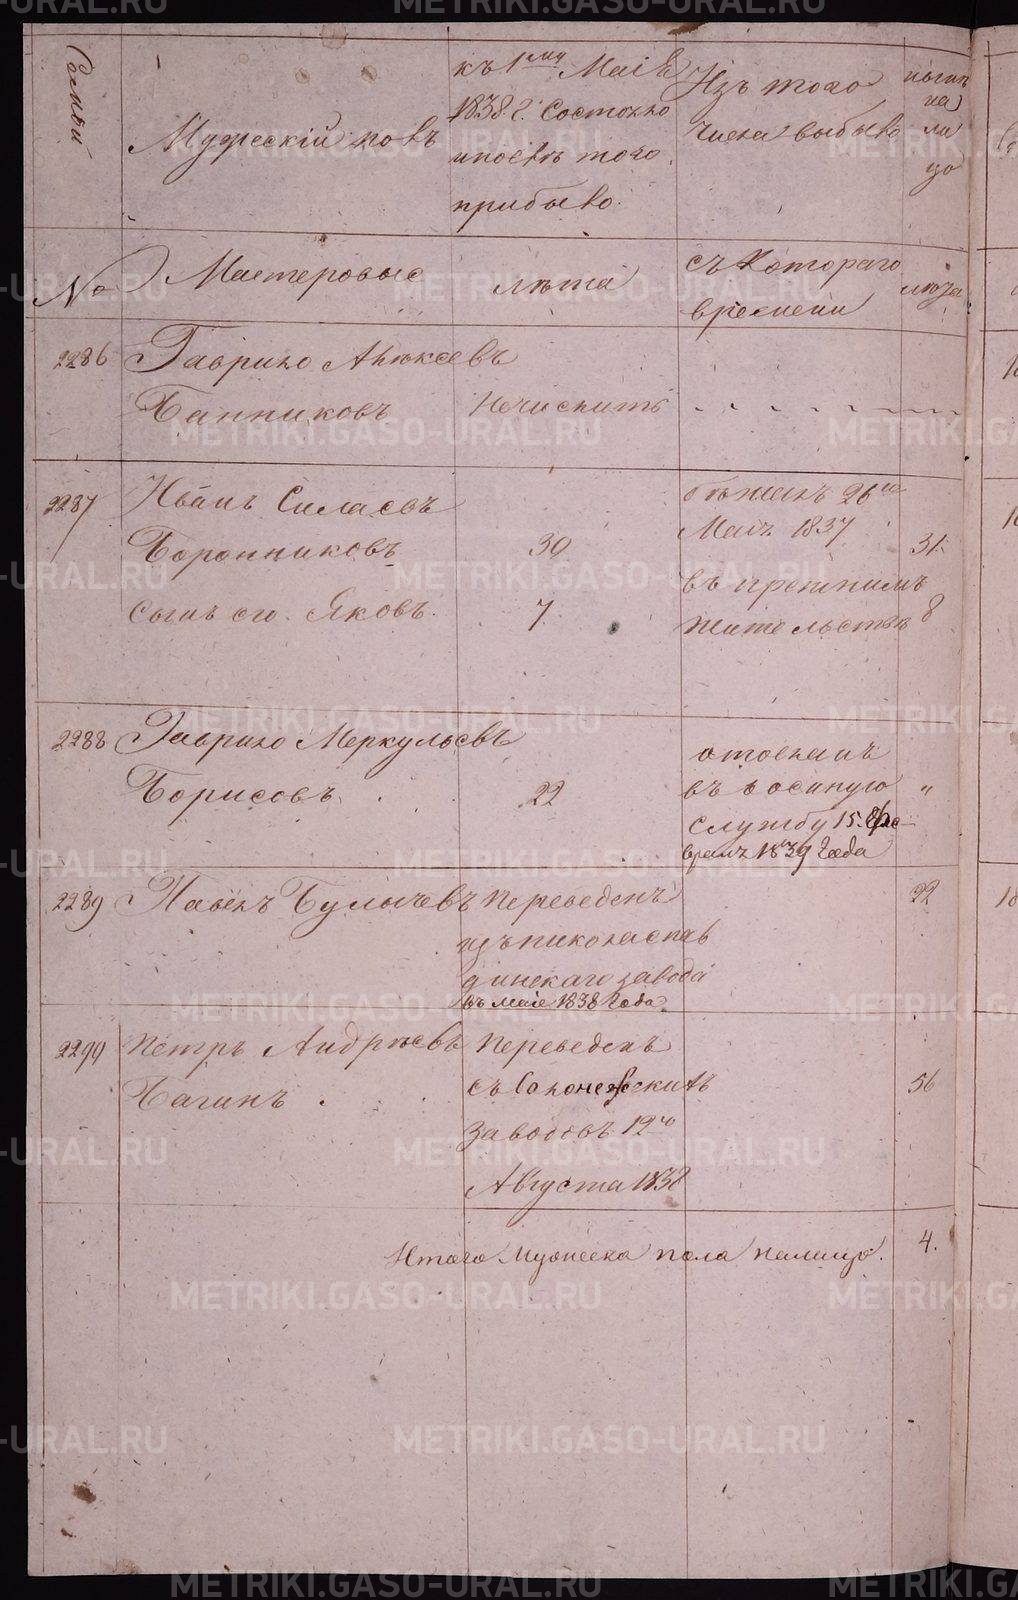 METRIKI.GASO-URAL.RU
Семьи
Мужескій полъ
къ 1му Маія
1838 г. Состояло
ипослѣ того
прибыло.
Изъ того
числа выбыло
нынѣ
на
ли
цо
№
Мастеровые
лѣта
съ Котораго
времени
лѣта
2286
Гаврило
Банниковъ
2287
Иванъ Силаевъ
Боронниковъ
30
26го
Маія 1837
31.
сынъ его. Яковъ.
7
въ
жительствѣ
8
2288
Гаврило Меркульевъ
Борисовъ.
22
отосланъ
въ военную
службу 15. Фе-
враля 1839 Года
"
2289
Павелъ Булычевъ
Переведенъ
изъ николаепав
динскаго завода
въ маіе 1838 Года.
22
2290
Петръ Андреевъ
Багинъ
Переведенъ
съ
заводовъ 12го
Августа 1838
56
Итого Мужеска пола налицо.
4.